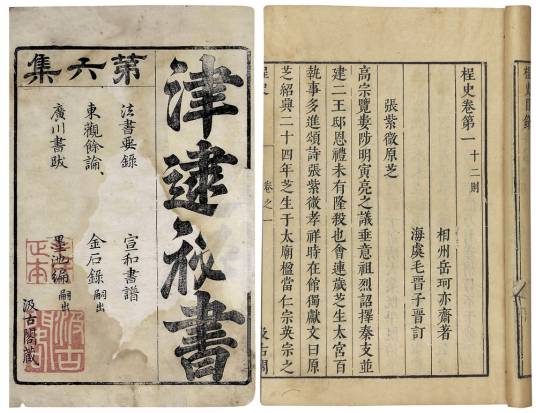 第六集
津逮秘書
法書要錄 宣和書譜
東觀餘論 金石錄嗣出
廣川書跋 墨池編嗣出
汲古閣藏
桯史卷第一 十二則
相州岳珂亦齋著
海虞毛晉子晉訂
張紫微原芝
高宗覽婁陟明寅亮之議垂意祖烈詔擇秦支並
建二王邸恩禮未有隆殺也會連歲芝生太宮百
執事多進頌詩張紫微孝祥時在館獨獻文曰原
芝紹興二十四年芝生于太廟楹當仁宗英宗之
卷之一